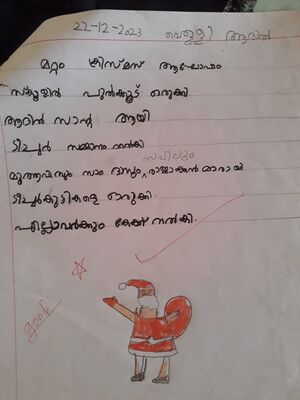 22-12-2023 വെള്ളി ആദിൽ
മറ്റം ക്രിസ്മസ് ആഘോഷം
സ്കൂളിൽ പുൽക്കൂട് ഒരുക്കി
ആദിൽ സാന്റ ആയി
ടീച്ചർ സമ്മാനം നൽകി
സഹിലും
സാം രാജാക്കൻമാരായി
ടീച്ചർകുട്ടികളെ ഒരുക്കി.
എല്ലാവർക്കും കേക്ക് നൽകി.
good